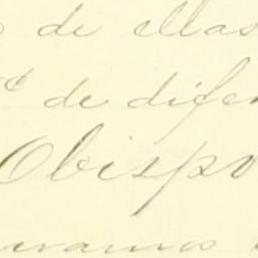 de ellas
de difer
Obispo